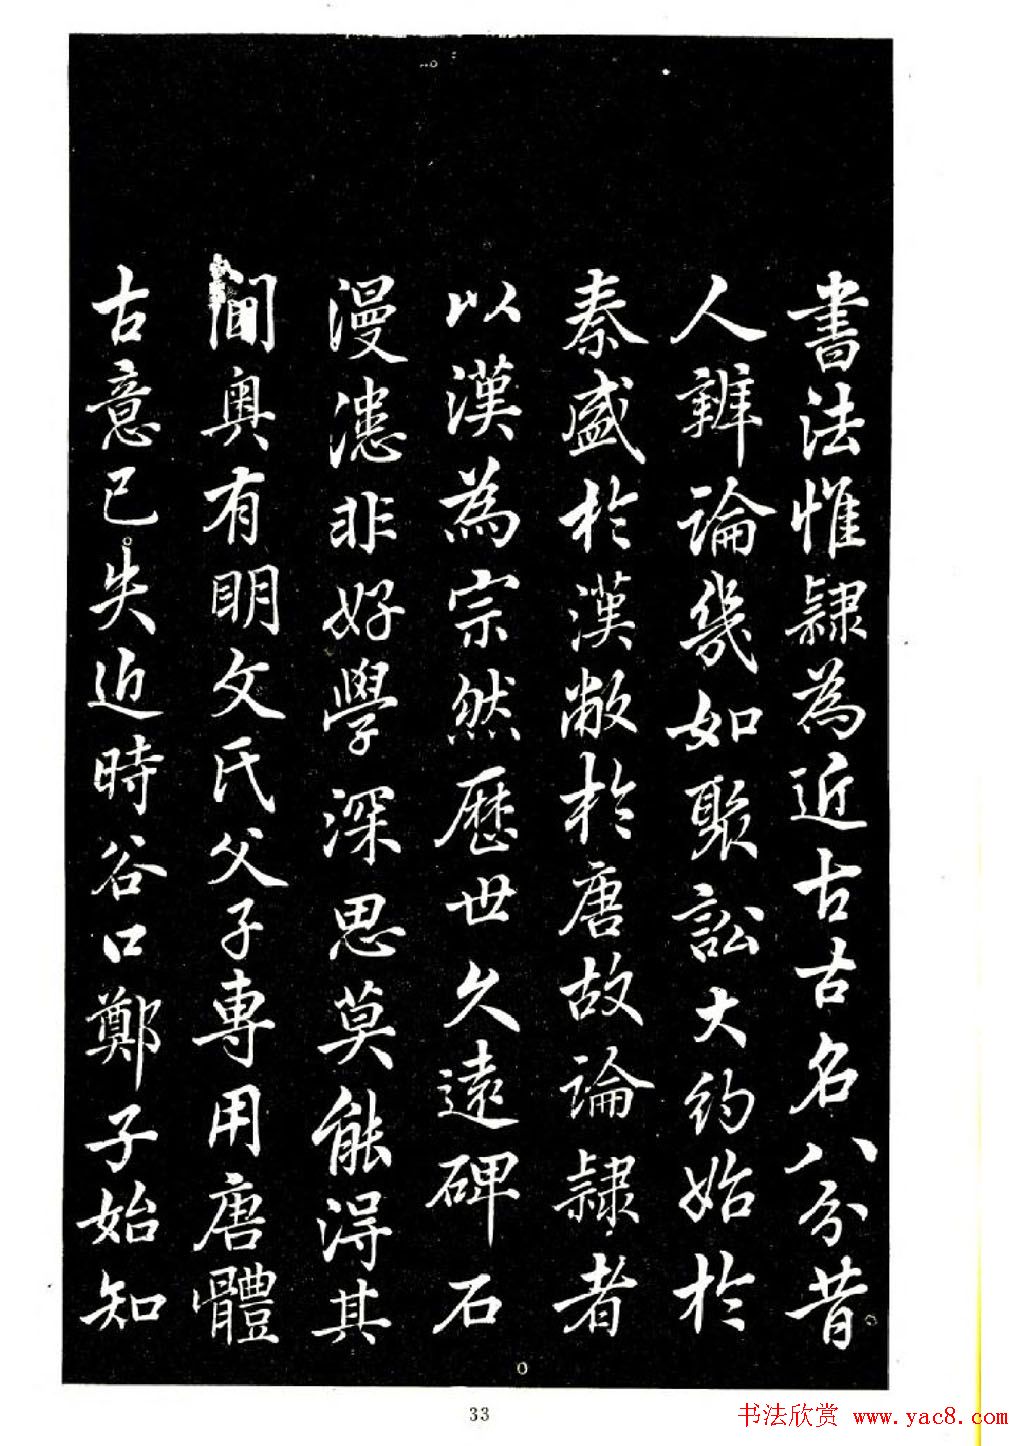 書法惟隸為近古古名八分昔
人辨論幾如聚訟大約始於
秦盛於漢敝於唐故論隸者
以漢為宗然歷世久遠碑石
漫漶非好學深思莫能得其
闃奥有明文氏父子專用唐體
古意已失近時谷口鄭子始知
33
书法欣赏 www.yac8.com